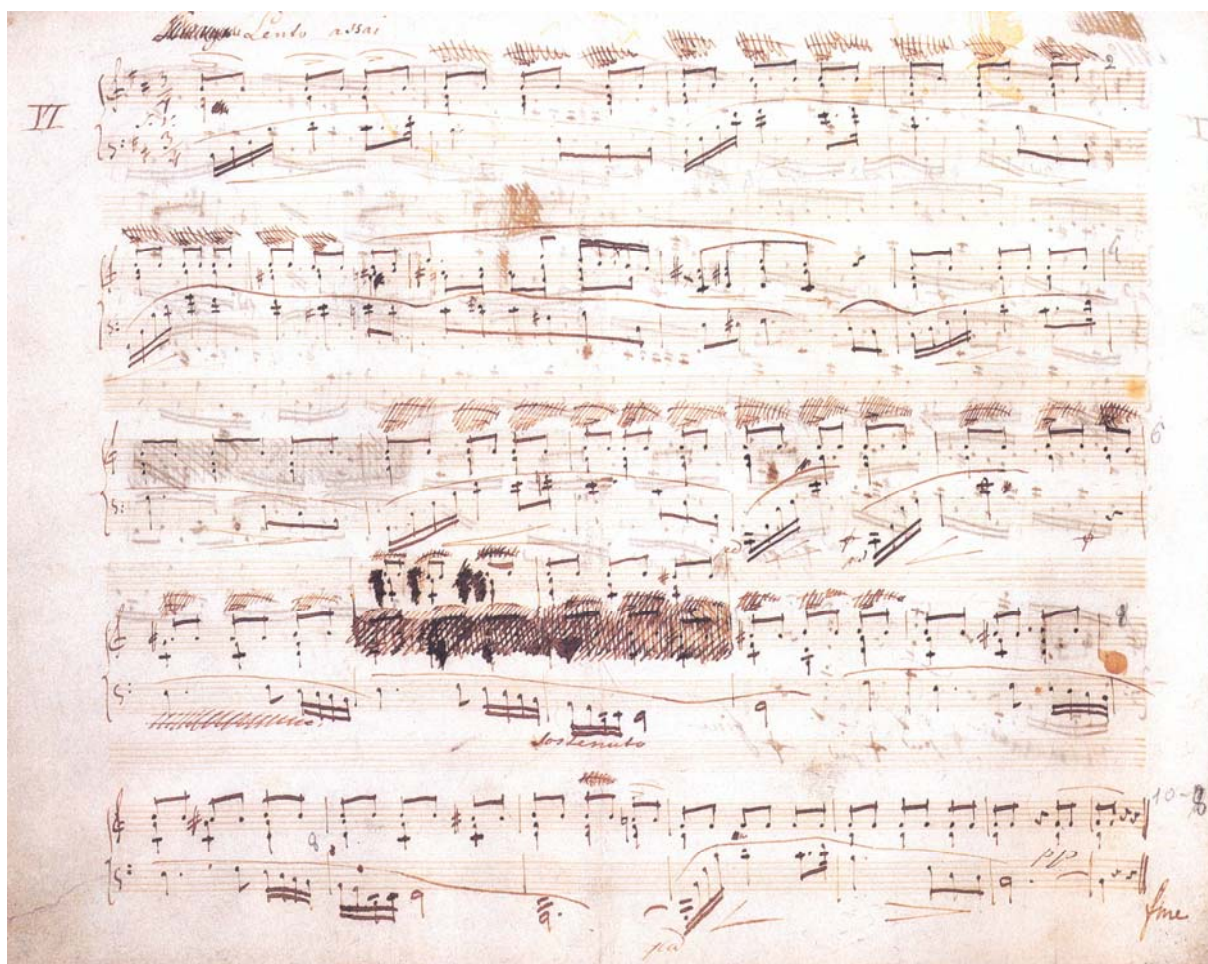 Lento assai
VI
2
4
6
8
sostenuto
10-8
pp
fine